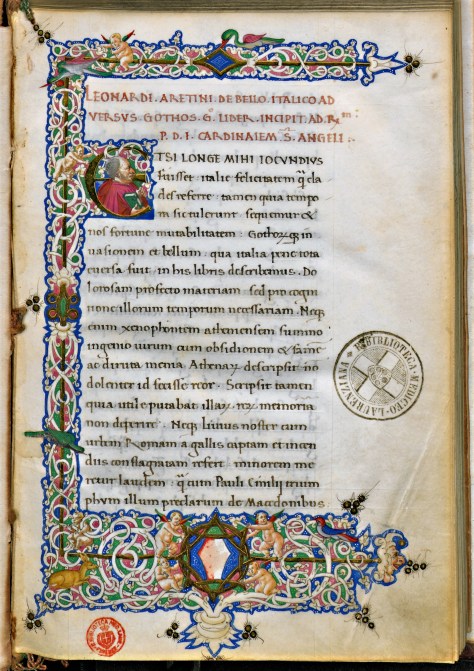 LEONARDI. ARETINI. DE BELLO. ITALICO AD
VERSUS. GOTHOS. LIBER. INCIPIT. AD. R.
P. D. I. CARDINALEM. S. ANGELI.
ETSI LONGE MIHI IOCUNDIUS
fuisset italie felicitatem q̃ cla
des referre: tamen quia tempo
rum sic tulerunt sequemur &
nos fortune mutabilitatem: Gothoꝝ in
uasionem et bellum: quo italia pene tota
euersa fuit in his libris describemus. Do
lorosam profecto materiam: sed pro cogni
tione illorum temporum necessariam. Neq;
enim xenophontem atheniensem summo
ingenio uirum cum obsidionem & famē
ac diruta menia Athenaꝝ descripsit: nō
dolenter id fecisse reor. Scripsit tamen
quia utile putabat illaꝝ reꝝ memoria
non deperire. Neq; Liuius noster cum
urbem Romam a gallis captam et incen
dio conflagratam refert: minorem me
retur laudem: q̃ cum Pauli Emilij trium
phum illum preclarum de Macedonibus
BIBLIOTECA MEDICEO-LAURENZIANA